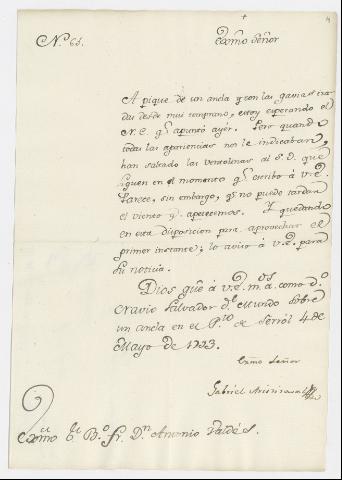 +
N.º 63.
Exmo Señor
A pique de un ancla y con las gavias
das desde mui temprano, estoy esperando el
N.E. qe apuntó ayer. Pero quando
todas las apariencias nos le indicaban,
han saltado las ventolinas al S.O. que
siguen en el momento qe escribo á V.E.
Parece, sin embargo, qe no puede tardar
el viento qe apetecemos. Y quedando
en esta disposicion para aprovechar el
primer instante; lo aviso á V.E. para
su noticia.
Dios gue á V.E. m.s a.s como d.o
Navio Salvador del Mundo sobre
un ancla en el P.to de Ferrol 4 de
Mayo de 1793.
Exmo Señor
Gabriel Aristizabal
Exmo Sr B.o fr. Dn Antonio Valdés.